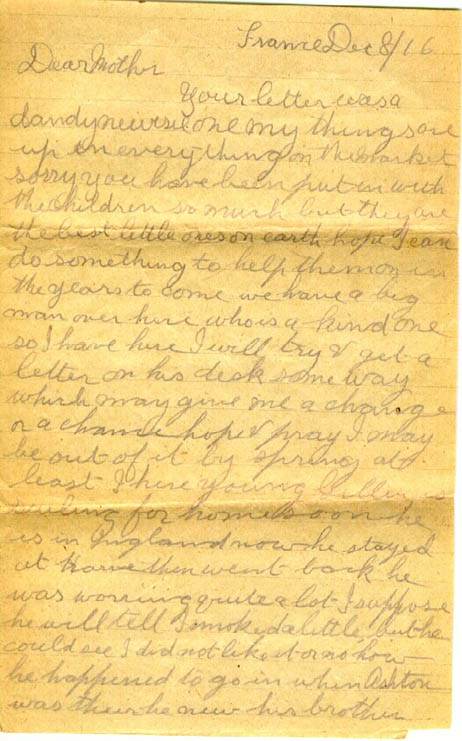 France Dec 8/16
Dear Mother
Your letter was a
dandy newsie one my things are
up on everything on the market
sorry you have been put in with
the children so much but they are
the best little ones on earth hope I can
do something to help them on in
the years to come we have a big
man over here who is a kind one
so I have here I will try & get a
letter on his desk some way
which may give me a change
or a chance hope & pray I may
be out of it by spring at
least I here young is
sailing for home soon he
is in England now he stayed
at then went back he
was worring quite a lot I suppose
he will tell I smoked a little, but he
could see I did not like it or no how
he happened to go in when Ashton
was their he new his brother